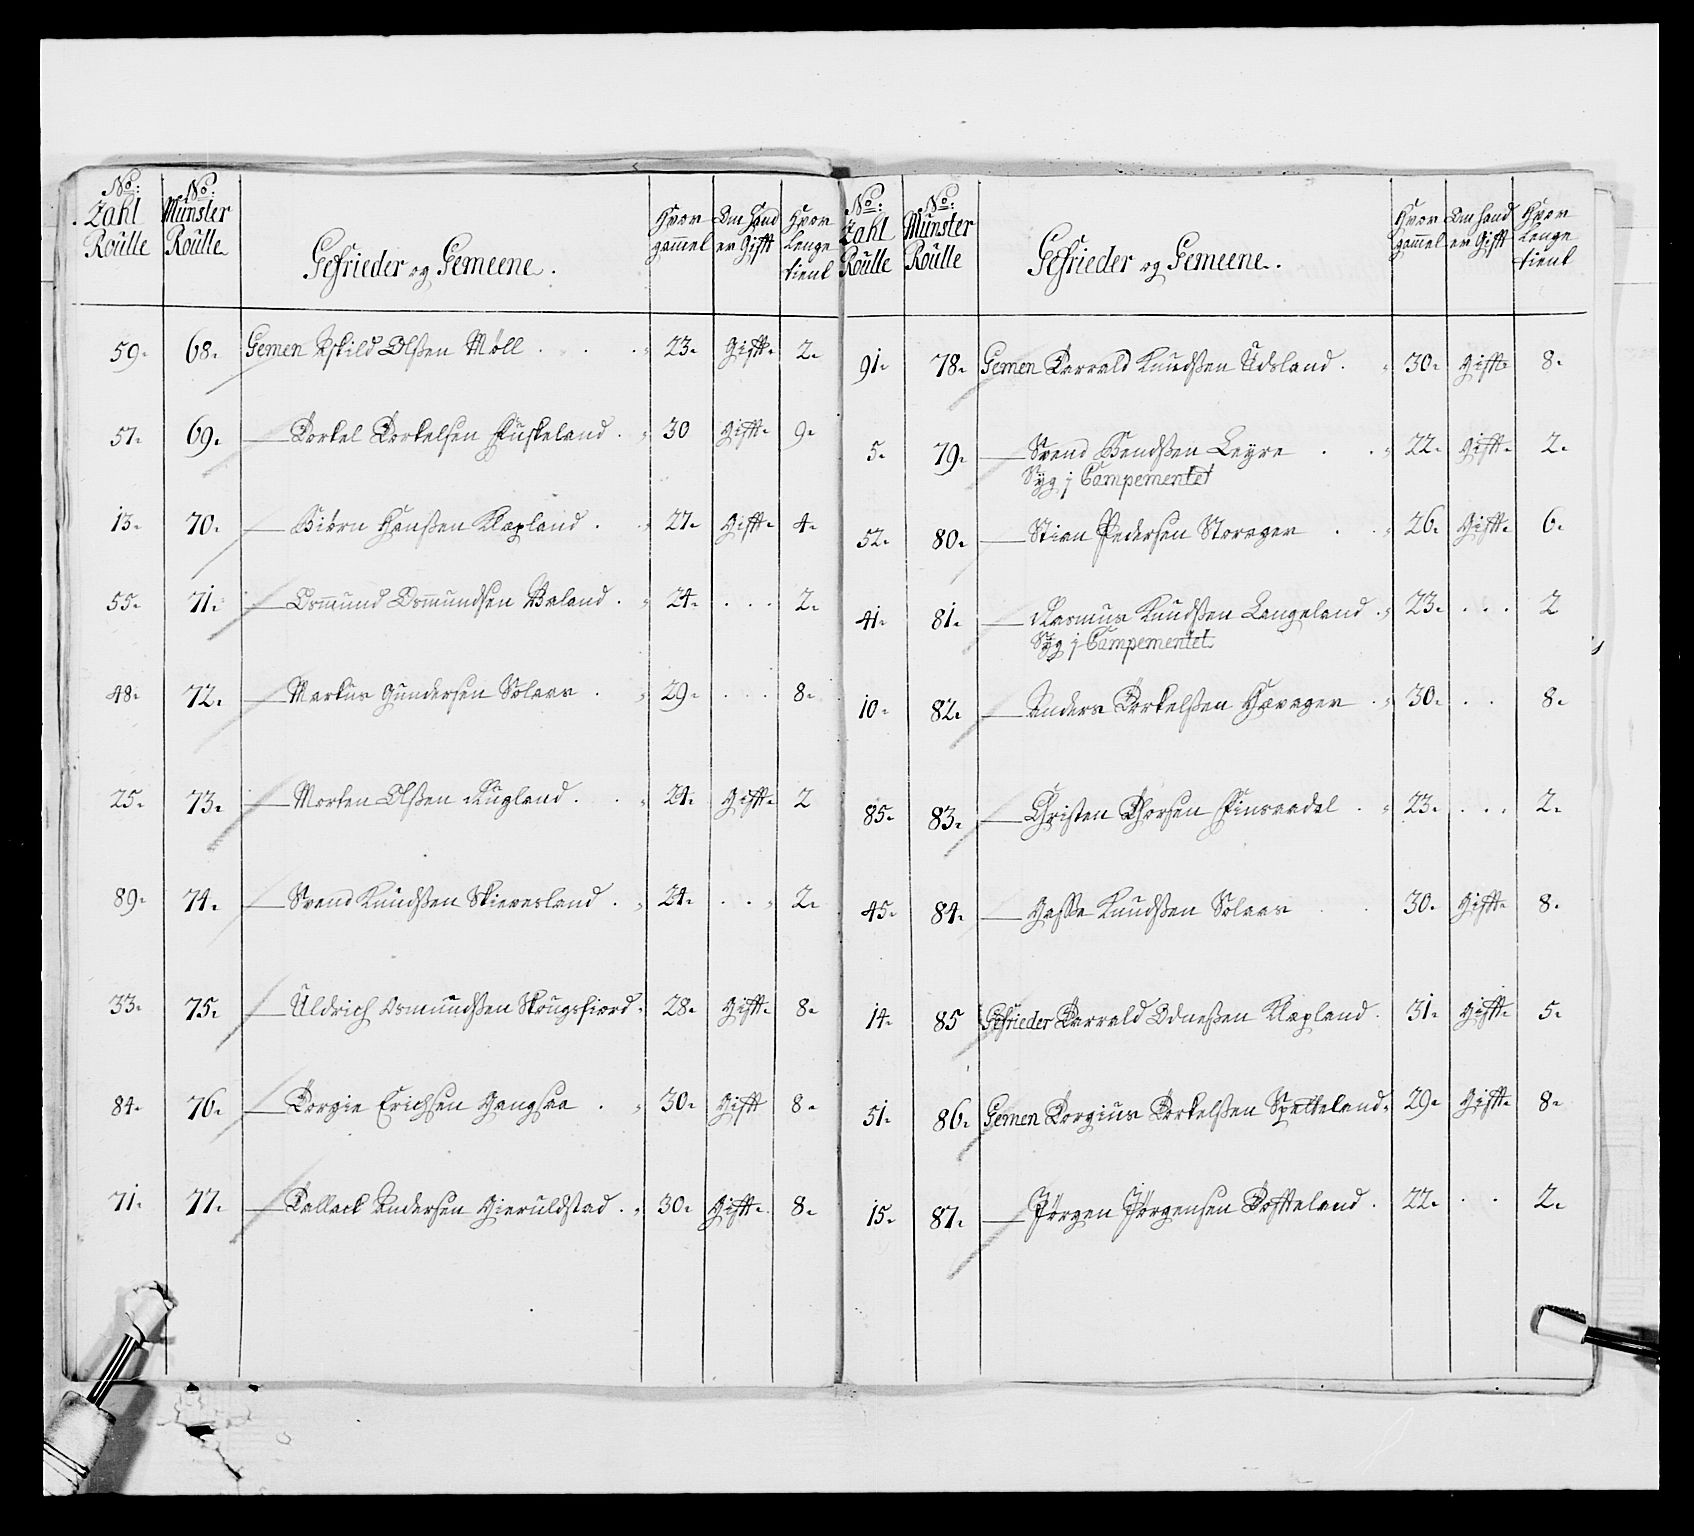 No: Zahl Roulle | No: Münster Roulle | Gefrieder og Gemeene. | Hvor gamel | Om hand er Gifft | Hvor Lenge tient
59. 68. Gemen Eskild Olßen Möll . . . 23. Gifft. 2.
57. 69. — Torkel Torkelsen Fuskeland . 30 Gifft. 9.
13. 70. — Biörn Hanßen Klepland . . 27. Gifft. 4.
55. 71. — Osmund Osmundsen Valand . 24. . . . 2.
48. 72. — Markus Gundersen Solaas . 29. . . . 8.
25. 73. — Morten Olßen Rugland . . 24. Gifft. 2
89. 74. — Svend Knudßen Skieresland . 24. . . . 2.
33. 75. — Uldrich Osmundßen Skougsfiord . 28. Gifft. 8.
84. 76. — Torgie Erichsen Hangsaa . 30. Gifft 8.
71. 77. — Tallack Andersen Gieruldstad . 30. Gifft. 8.
No: Zahl Roulle | No: Münster Roulle | Gefrieder og Gemeene. | Hvor gamel | Om hand er Gifft | Hvor Lenge tient
91. 78. Gemen Tarrald Knudßen Udsland . 30. Gifft. 8.
5. 79. — Svend Bendßen Leyre . . 22. Gifft. 2.
Syg j Campementet
52. 80. — Stian Pedersen Storager . . 26. Gifft. 6.
41. 81. — Rasmus Knudßen Langeland . 23. . . . 2
Syg j Campementet
10. 82. — Anders Torkelßen Haaager . 30. . . 8.
85. 83. — Christen Thorsen Finsaadal . 23. . . . 2.
45. 84. — Gasse Knudßen Solaas . . 30. Gifft. 8.
14. 85 Gefrieder Tarrald Odneßen Klepland . 31. Gifft. 5.
51. 86. Gemen Torgius Torkelßen Spetteland . 29. Gifft. 8.
15. 87. — Jörgen Jörgensen Toffteland . 22. . . 2.